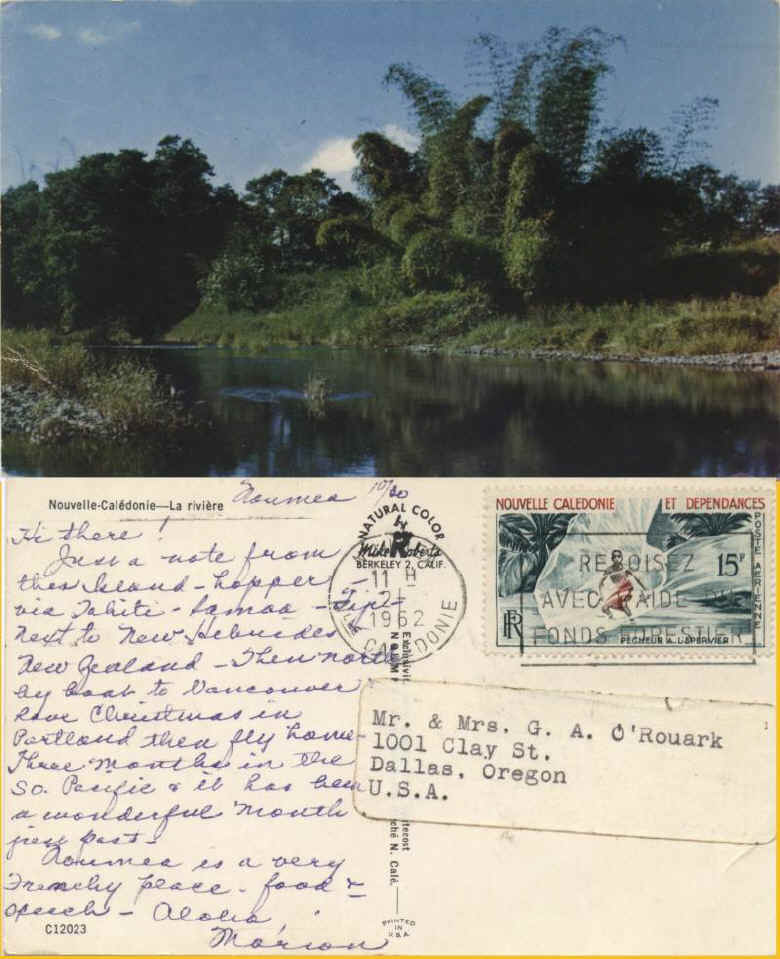 Nouvelle-Calédonie—La rivière
Noumea 10/20
Hi there!
Just a note from
this Island-hopper -
via Tahiti - Samoa - Fiji -
next to New Hebrides
New Zealand - Then north
by boat to Vancouver
have Christmas in
Portland then fly home -
Three months in the
So. Pacific & it has been
a wonderful month
just past -
Noumea is a very
Frenchy place - food &
speech - Aloha
Marion
C12023
NATURAL COLOR
by
Mike Roberts
BERKELEY 2, CALIF.
11 H
1962
CALEDONIE
Exclusivité
NOUM
ntecost
ché N. Calé.
PRINTED
IN
U.S.A.
NOUVELLE CALEDONIE ET DEPENDANCES
POSTE AERIENNE
15F
RF
PECHEUR A L'EPERVIER
REBOISEZ
AVEC L'AIDE DU
FONDS FORESTIER
Mr. & Mrs. G. A. O'Rouark
1001 Clay St.
Dallas, Oregon
U.S.A.